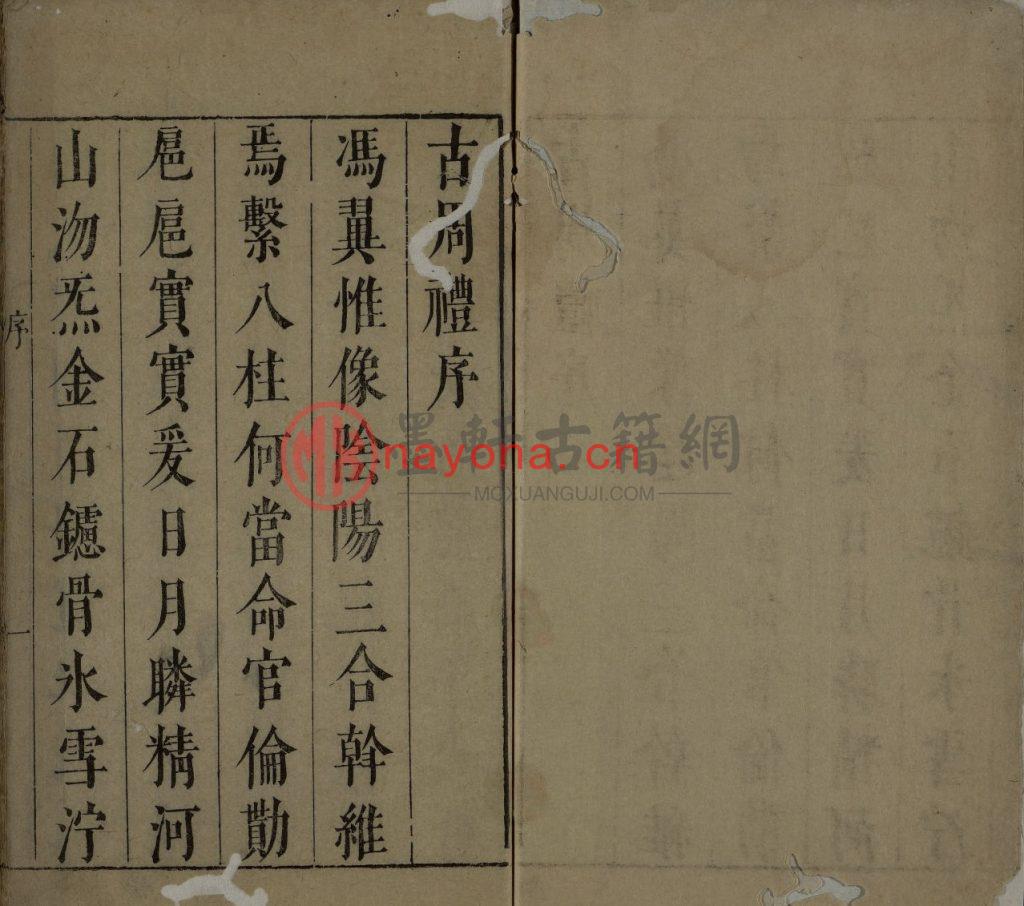 古周禮序
馮翼惟像陰陽三合幹維
焉繫八柱何當命官倫勩
扈扈實實爰日月瞵精河
山沕炁金石鑢骨氷雪泞
序
一
墨軒古籍網
nayona.cn
MOXUANGUJI.COM